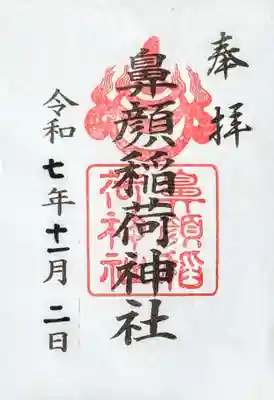 奉拝
鼻顔稲荷神社
鼻顔稲
荷神社
令和七年十一月二日